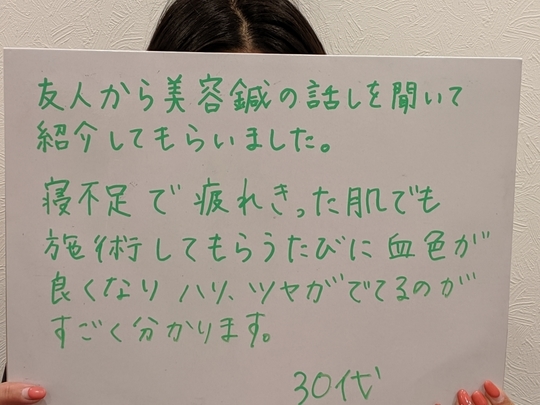 友人から美容鍼の話しを聞いて
紹介してもらいました。
寝不足で疲れきった肌でも
施術してもらうたびに血色が
良くなり ハリ、ツヤがでてるのが
すごく分かります。
30代